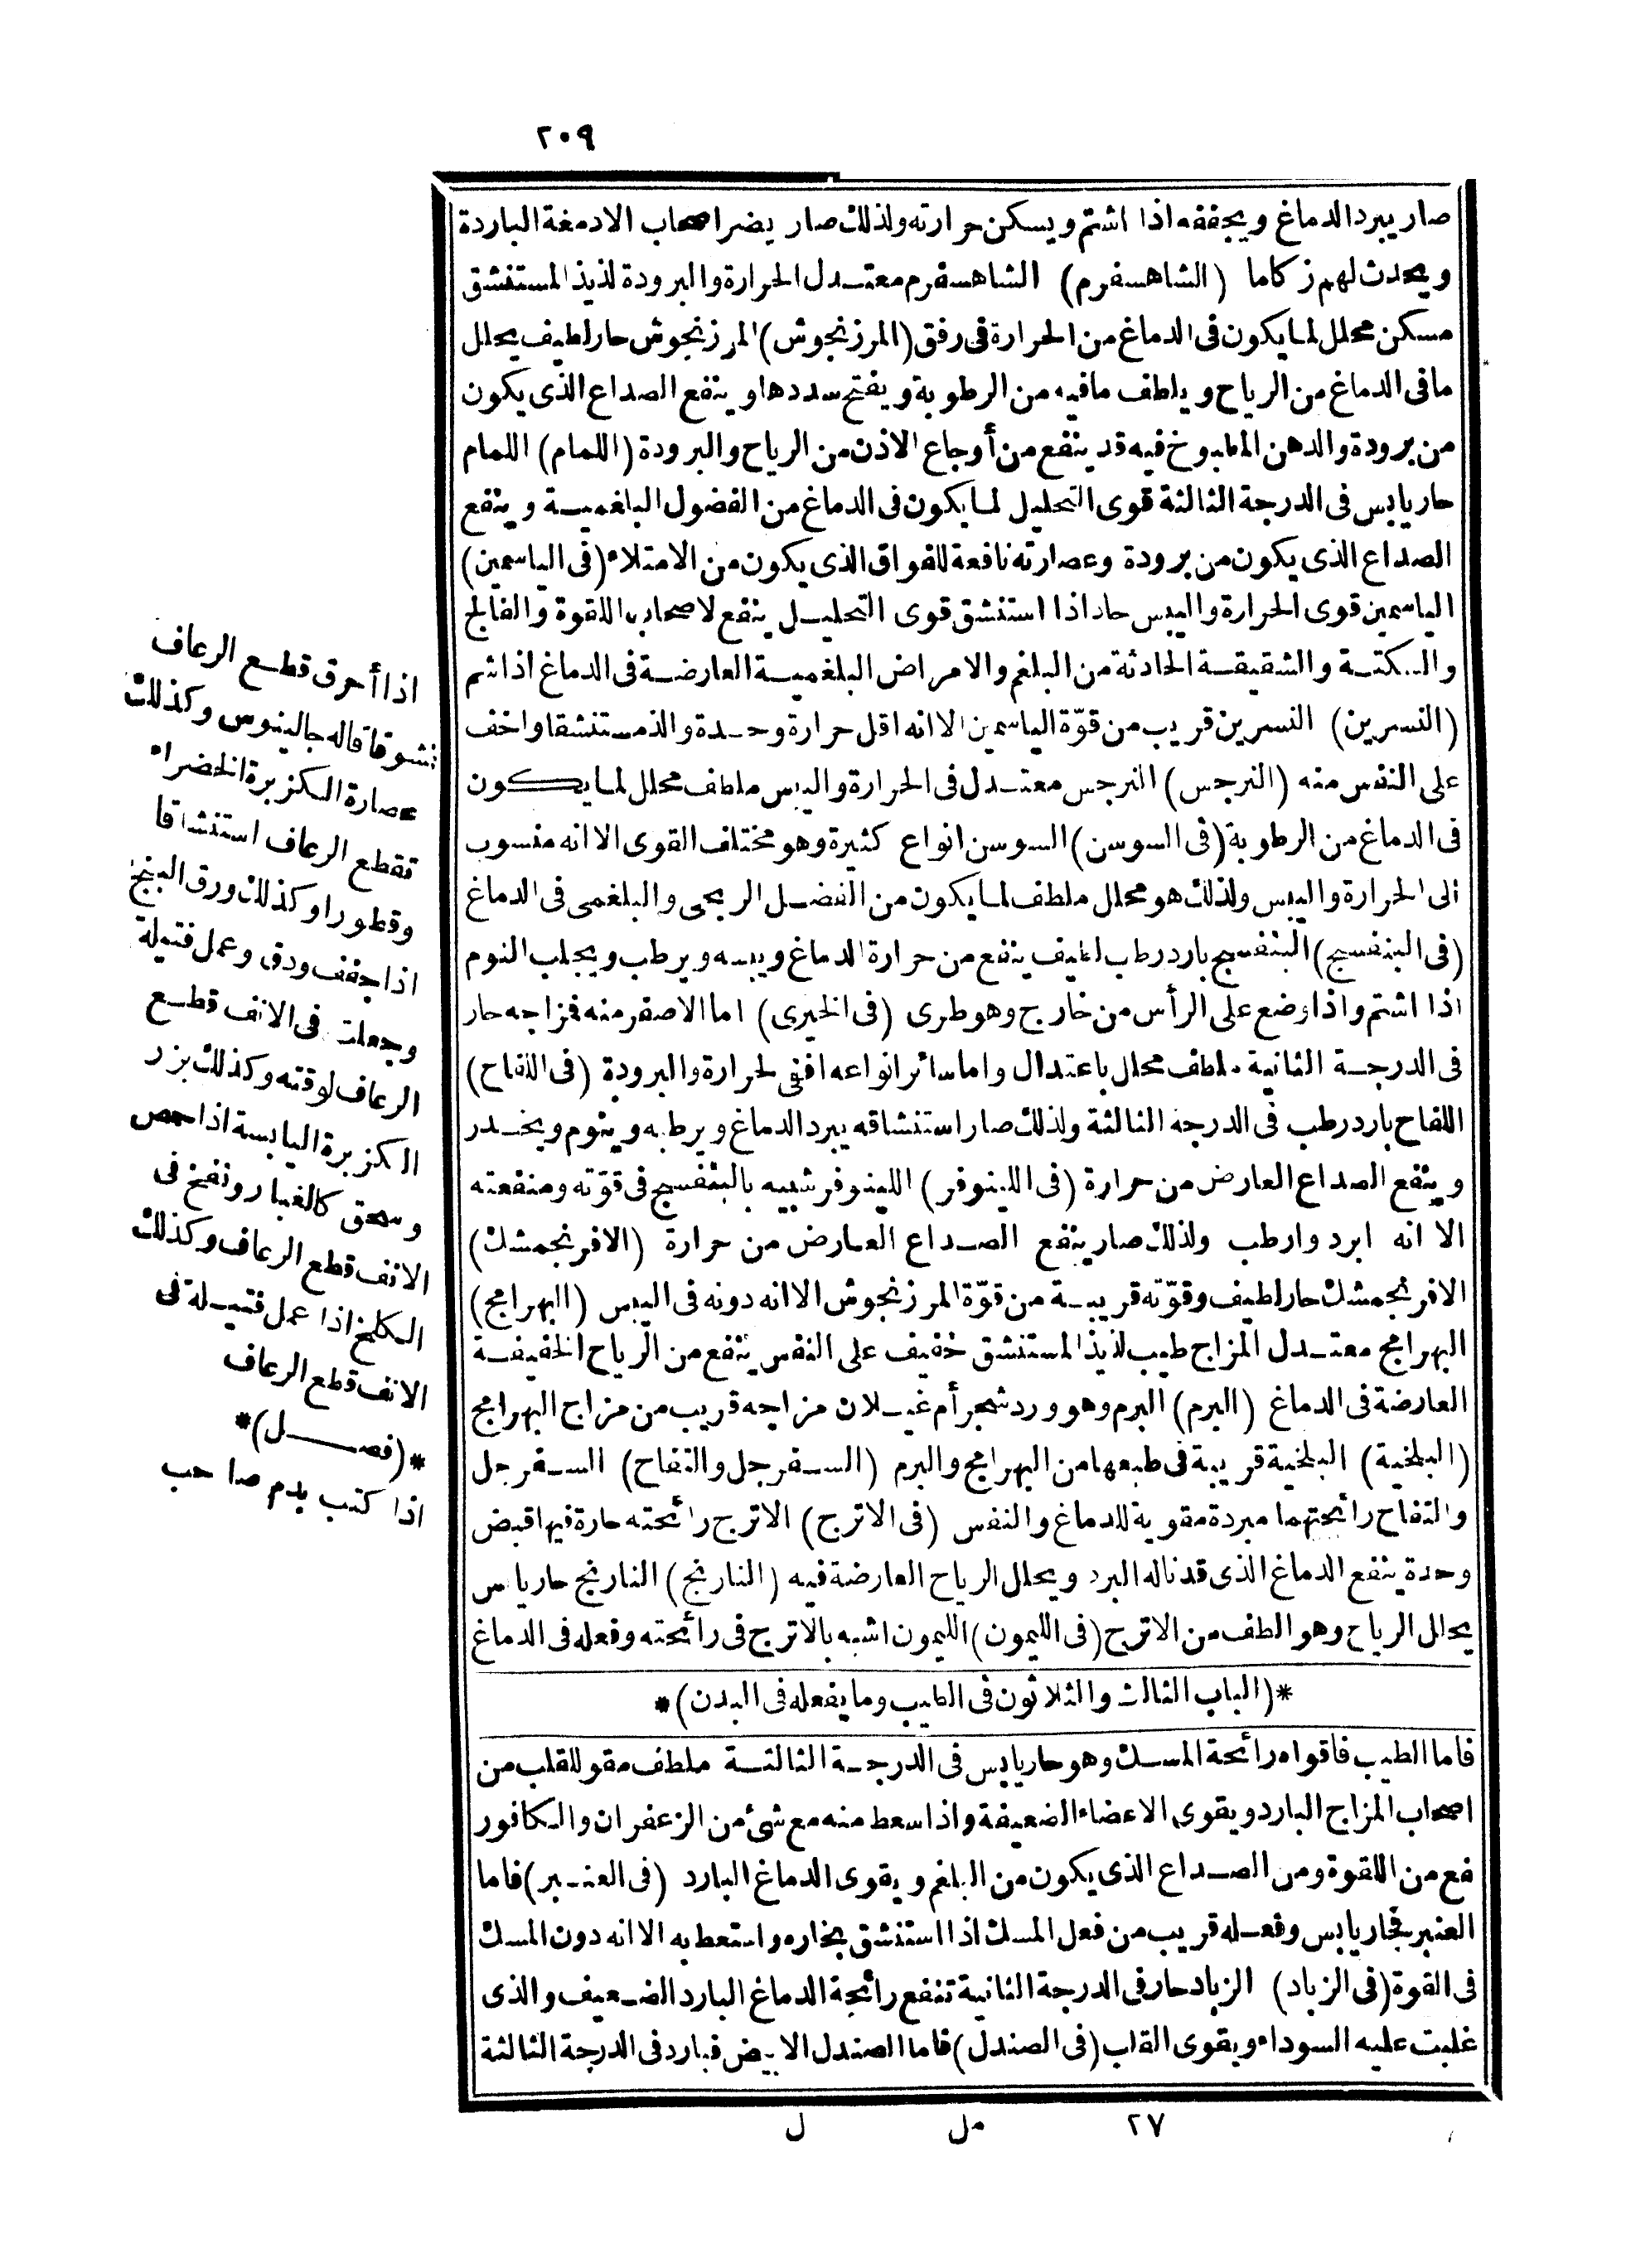 ٢٠٩
صار يبرد الدماغ ويجففه اذا اشتم ويسكن حرارته ولذلك صار يضر اصحاب الادمغة الباردة
ويحدث لهم زكاما (الشاهسفرم) الشاهسفرم معتدل الحرارة والبرودة لذيذ المستنشق
مسكن محلل لما يكون فى الدماغ من الحرارة فى رفق (المرزنجوش) المرزنجوش حار لطيف يحلل
مافى الدماغ من الرياح ويلطف مافيه من الرطوبة ويفتح سددها وينفع الصداع الذى يكون
من برودة والدهن المطبوخ فيه قد ينفع من أوجاع الاذن من الرياح والبرودة (اللمام) اللمام
حار يابس فى الدرجة الثالثة قوى التحليل لما يكون فى الدماغ من الفضول البلغمية وينفع
الصداع الذى يكون من برودة وعصارته نافعة للفواق الذى يكون من الامتلاء (فى الياسمين)
الياسمين قوى الحرارة واليبس حاد اذا استنشق قوى التحليل ينفع لاصحاب اللقوة والفالج
والسكتة والشقيقة الحادثة من البلغم والامراض البلغمية العارضة فى الدماغ اذا شم
(النسرين) النسرين قريب من قوّة الياسمين الا انه اقل حرارة وحدة والذ مستنشقا واخف
على النفس منه (النرجس) النرجس معتدل فى الحرارة واليبس ملطف محلل لما يكون
فى الدماغ من الرطوبة (فى السوسن) السوسن انواع كثيرة وهو مختلف القوى الا انه منسوب
الى الحرارة واليبس ولذلك هو محلل ملطف لما يكون من الفضل الريحى والبلغمى فى الدماغ
(فى البنفسج) البنفسج بارد رطب لطيف ينفع من حرارة الدماغ ويبسه ويرطب ويجلب النوم
اذا اشتم واذا وضع على الرأس من خارج وهو طرى (فى الخيرى) اما الاصفر منه فمزاجه حار
فى الدرجة الثانية ملطف محلل باعتدال واما سائر انواعه ففى الحرارة والبرودة (فى اللفاح)
اللفاح بارد رطب فى الدرجة الثالثة ولذلك صار استنشاقه يبرد الدماغ ويرطبه وينوم ويخدر
وينفع الصداع العارض من حرارة (فى اللينوفر) اللينوفر شبيه بالبنفسج فى قوّته ومنفعته
الا انه ابرد وارطب ولذلك صار ينفع الصداع العارض من حرارة (الافرنجمشك)
الافرنجمشك حار لطيف وقوّته قريبة من قوّة المرزنجوش الا انه دونه فى اليبس (البهرامج)
البهرامج معتدل المزاج طيب لذيذ المستنشق خفيف على النفس ينفع من الرياح الخفيفة
العارضة فى الدماغ (البرم) البرم وهو ورد شجر أم غيلان مزاجه قريب من مزاج البهرامج
(البلخية) البلخية قريبة فى طبعها من البهرامج والبرم (السفرجل والتفاح) السفرجل
والتفاح رائحتهما مبردة مقوية للدماغ والنفس (فى الاترج) الاترج رائحته حارة فيها قبض
وحدة ينفع الدماغ الذى قد ناله البرد ويحلل الرياح العارضة فيه (النارنج) النارنج حار يابس
يحلل الرياح وهو الطف من الاترج (فى الليمون) الليمون اشبه بالاترج فى رائحته وفعله فى الدماغ
*(الباب الثالث والثلاثون فى الطيب وما يفعله فى البدن)*
فاما الطيب فاقواه رائحة المسك وهو حار يابس فى الدرجة الثالثة ملطف مقو للقلب من
اصحاب المزاج البارد ويقوى الاعضاء الضعيفة واذا سعط منه مع شئ من الزعفران والكافور
نفع من اللقوة ومن الصداع الذى يكون من البلغم ويقوى الدماغ البارد (فى العنبر) فاما
العنبر فحار يابس وفعله قريب من فعل المسك اذا استنشق بخاره واستعط به الا انه دون المسك
فى القوة (فى الزباد) الزباد حار فى الدرجة الثانية تنفع رائحة الدماغ البارد الضعيف والذى
غلبت عليه السوداء ويقوى القلب (فى الصندل) فاما الصندل الابيض فبارد فى الدرجة الثالثة
٢٧ مل ل
اذا أحرق قطع الرعاف
نشوقا قاله جالينوس وكذلك
عصارة الكزبرة الخضراء
تقطع الرعاف استنشاقا
وقطورا وكذلك ورق البنج
اذا جفف ودق وعمل فتيلة
وجعلت فى الانف قطع
الرعاف لوقته وكذلك بزر
الكزبرة اليابسة اذا حمص
وسحق كالغبار ونفخ فى
الانف قطع الرعاف وكذلك
الكلخ اذا عمل فتيلة فى
الانف قطع الرعاف
*(فصل)*
اذا كتب بدم صاحب